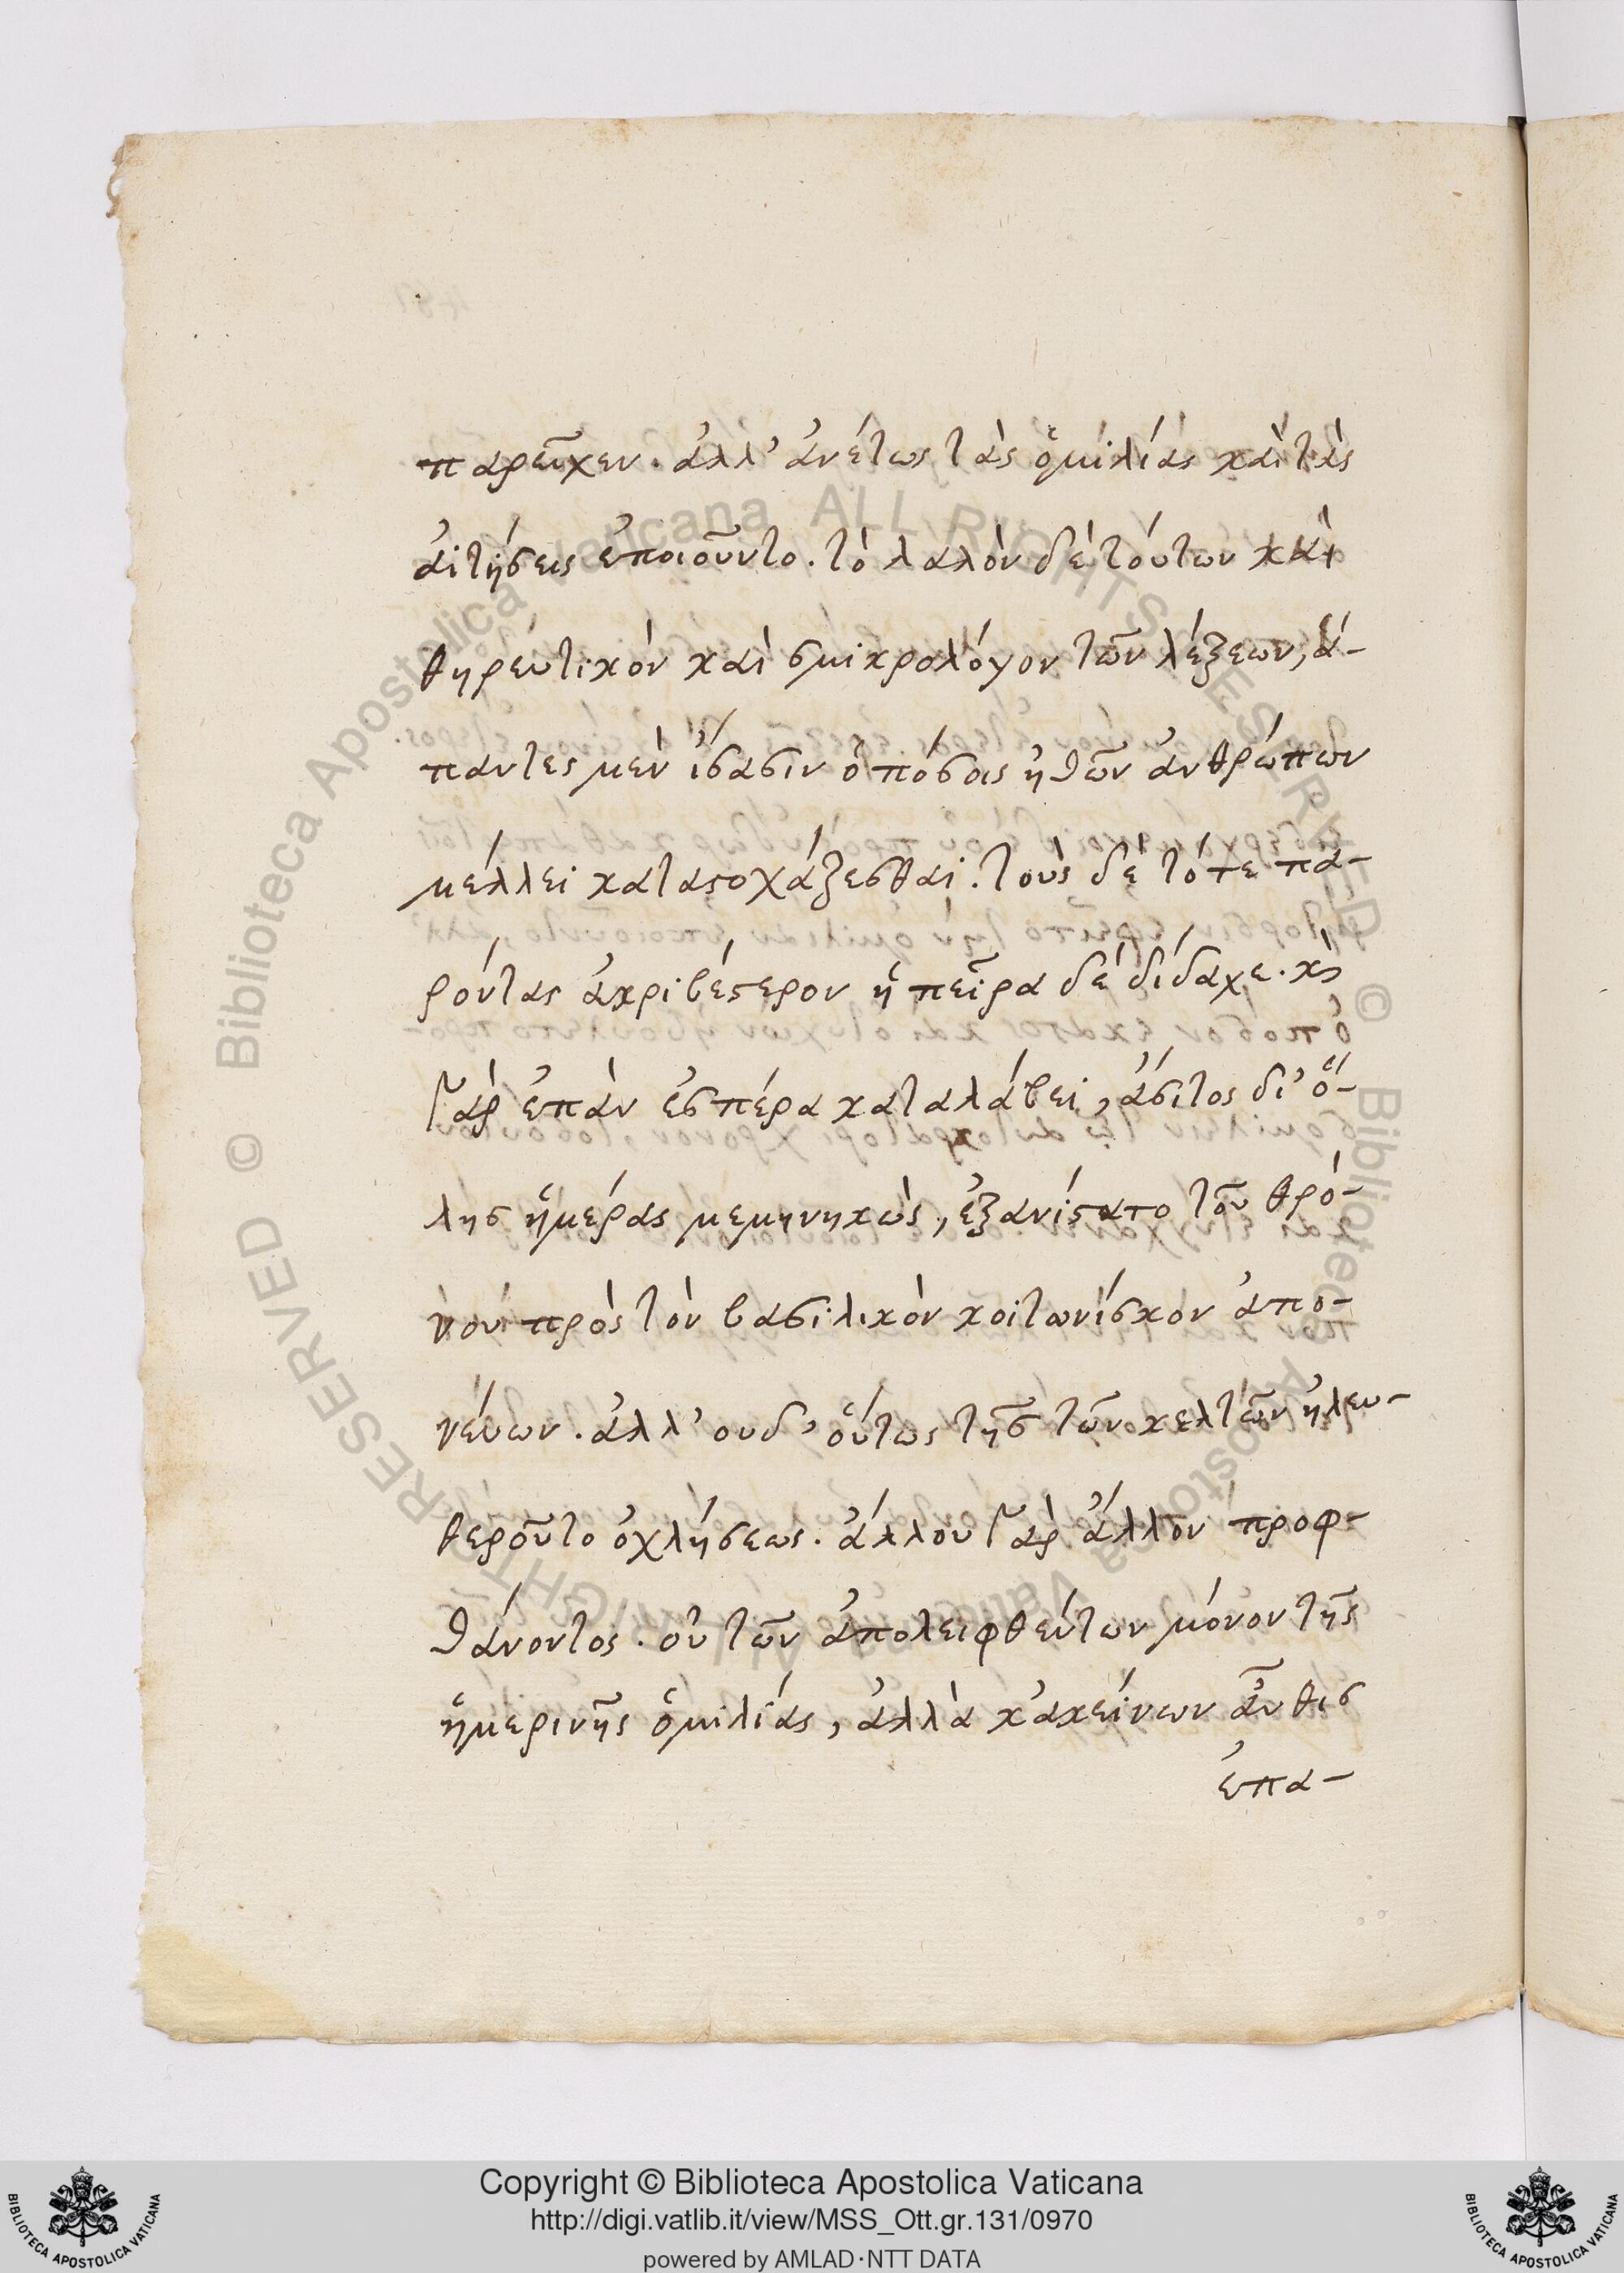 παρεῖχεν. ἀλλ' ἀνέτως τὰς ὁμιλίας καὶ τὰς
ἀιτήσεις ἐποιοῦντο. τὸ λαλὸν δὲ τούτων καὶ
θηρευτικὸν καὶ σμικρολόγον τῶν λέξεων, ἅ-
παντες μὲν ἴσασιν ὁπόσοις ἠθῶν ἀνθρώπων
μέλλει καταστοχάζεσθαι. τοὺς δὲ τότε πα-
ρόντας ἀκριβέστερον ἡ πεῖρα δεδίδαχε. κὶ
γὰρ ἐπὰν ἑσπέρα καταλάβει, ἄσιτος δι' ὅ-
λης ἡμέρας μεμηνηκὼς, ἐξανίστατο τοῦ θρό-
νου πρὸς τὸν βασιλικὸν κοιτωνίσκον ἀπο-
νέυων. ἀλλ' ουδ' οὕτως τῆς τῶν κελτῶν ἠλευ-
θεροῦτο ὀχλήσεως. ἄλλου γὰρ ἄλλον προφ-
θάνοντος. οὐ τῶν ἀπολειφθέντων μόνον τῆς
ἡμερινῆς ὁμιλίας, ἀλλὰ κἀκείνων αὖθις
ἐπα-
Copyright © Biblioteca Apostolica Vaticana
http://digi.vatlib.it/view/MSS_Ott.gr.131/0970
powered by AMLAD·NTT DATA
BIBLIOTECA APOSTOLICA VATICANA
BIBLIOTECA APOSTOLICA VATICANA
© Biblioteca Apostolica Vaticana ALL RIGHTS RESERVED
© Biblioteca Apostolica Vaticana ALL RIGHTS RESERVED